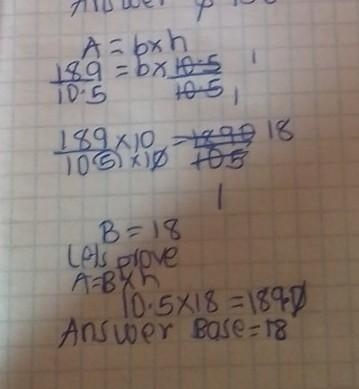 Answer
A = b×h
189/10.5 = b×10.5/10.5
189×10/10.5×10 = 1890/105 18
1
B = 18
Lets prove
A=B×h
10.5×18 = 189.0
Answer Base = 18